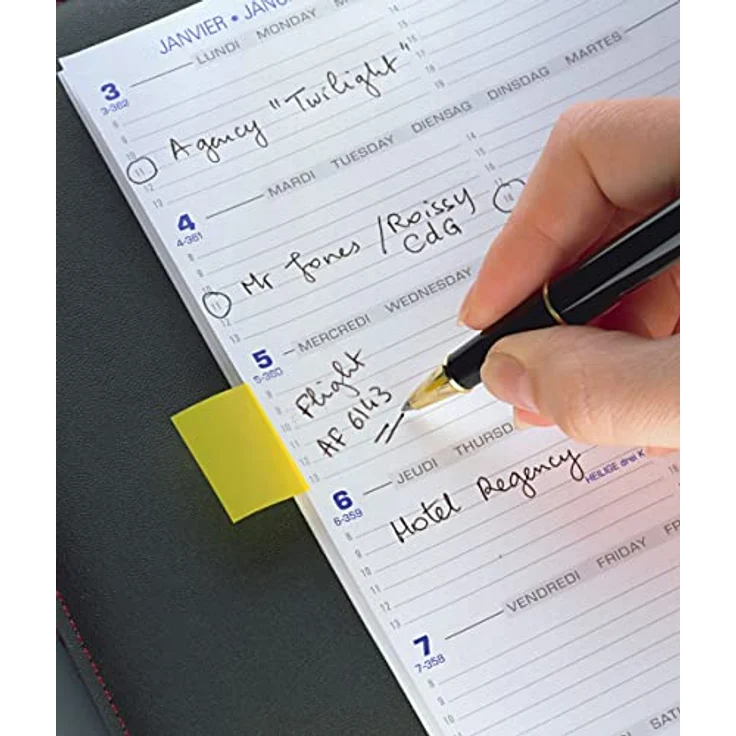 JANVIER • JANU
LUNDI MONDAY M
3
3-362
Agency "Twilight"
MARDI TUESDAY DIENSTAG DINSDAG MARTES
4
4-361
Mr Jones / Roissy
CdG
MERCREDI WEDNESDAY
5
5-360
Flight
AF 6143
JEUDI THURSD
6
6-359
Hotel Regency
HEILIGE drei K
VENDREDI FRIDAY FR
7
7-358
SAT